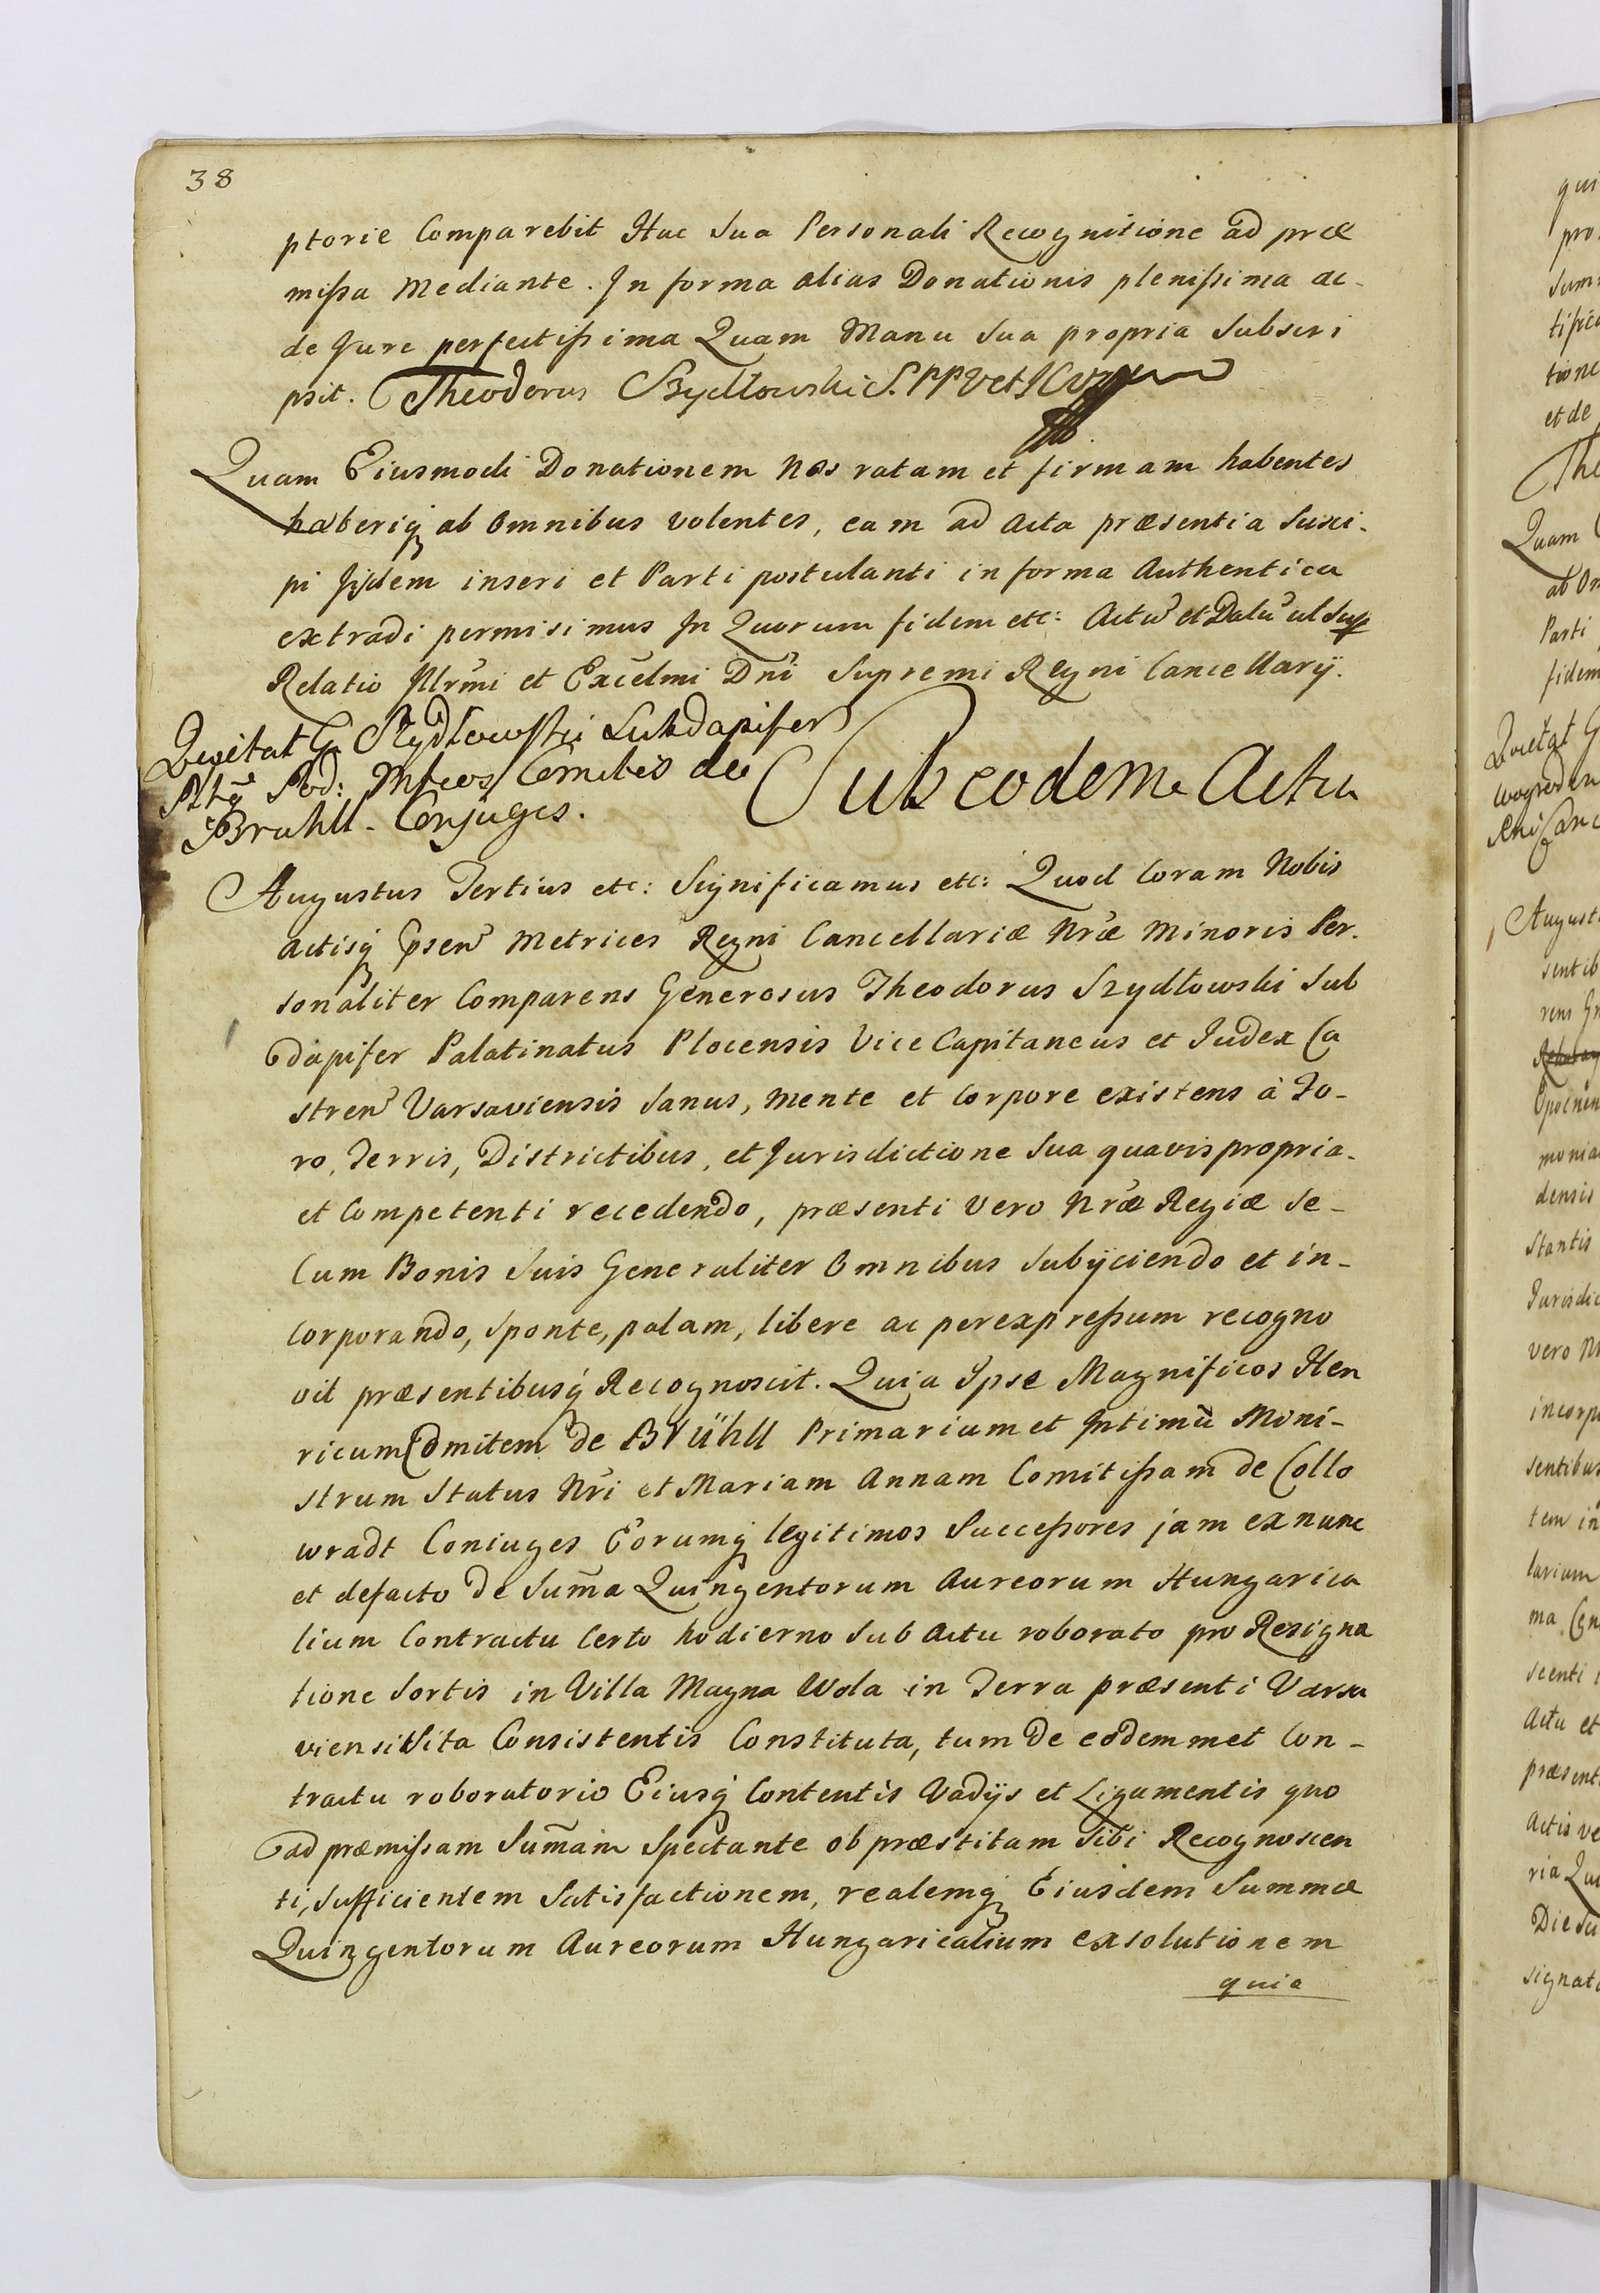 38
ptorie Comparebit Hac Sua Personali Recognitione ad præ
missa Mediante. In forma alias Donationis plenissima ac
de Jure perfectissima Quam Manu Sua propria Subscri
psit. Theodorus Szydłowski S. P P V et J C
Quam Eiusmodi Donationem Nos ratam et firmam habentes
haberiq ab Omnibus volentes, eam ad Acta præsentia Susci-
pi Ijsdem inseri et Parti postulanti in forma Authentica
extradi permisimus In Quorum fidem etc: Actũ et Datũ ut Sup
Relatio Illrmi et Excelmi Dni Supremi Regni Cancellarij.
Quietat G. Szydłowski Subdapifer
Pod: Mfcos Comites de
Bruhll. Conjuges.
Sub eodem Actu
Augustus Tertius etc: Significamus etc: Quod Coram Nobis
actisq psen Metrices Regni Cancellariæ Nræ Minoris Per-
sonaliter Comparens Generosus Theodorus Szydłowski Sub
dapifer Palatinatus Plocensis Vice Capitaneus et Judex Ca
stren Varsaviensis Sanus, mente et Corpore existens à Fo-
ro, Terris, Districtibus, et Jurisdictione Sua quavis propria
et Competenti recedendo, præsenti vero Nræ Regiæ Se-
Cum Bonis Suis Generaliter Omnibus Subijciendo et in-
Corporando, Sponte, palam, libere ac per expressum recogno
vit præsentibusq Recognoscit. Quia Ipse Magnificos Hen
ricum Comitem de Brühll Primarium et Intimũ Mini-
strum Status Nri et Mariam Annam Comitissam de Collo
wradt Coniuges Eorumq legitimos Successores jam ex nunc
et defacto de Suma Quingentorum Aureorum Hungarica
lium Contractu Certo hodierno Sub Actu roborato pro Resigna
tione Sortis in Villa Magna Wola in Terra præsenti Varsa
viensi Sita Consistentis Constituta, tum de eodemmet Con-
tractu roboratorio Eiusq Contentis Vadijs et Ligamentis quo
ad præmissam Sumam Spectante ob præstitam Sibi Recognoscen
ti, Sufficientem Satisfactionem, realemq Eiusdem Summæ
Quingentorum Aureorum Hungaricalium exsolutionem
quia
qui
pro
Sum
tisfic
tione
et de
The
Quam
ab Om
Parti
fidem
Quietat G
Augusti
sentib
rens
monia
densis
Stantis
Jurisdic
vero
incorp
sentibus
tem in
larium
scenti
Actu et
præsent
Actis ve
ria
Die
signat